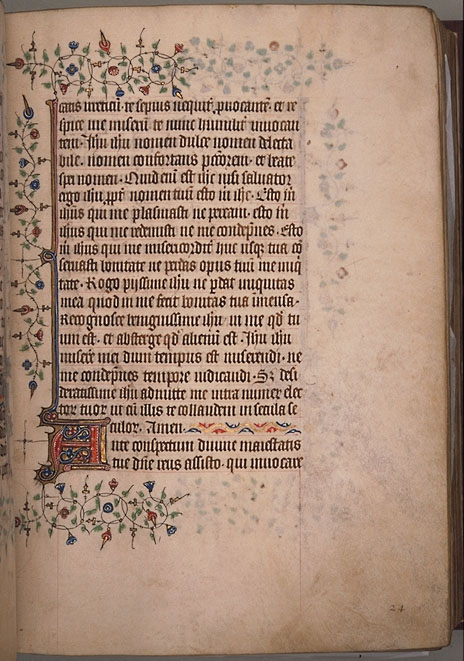 catis meritu te sepius nequit puocante et re
spice me miseru te nunc humilit inuocan
tem Ihu ihu nomen dulce nomen delecta
bile nomen confortans pctorem et beate
spei nomen Quid eni est ihc nisi saluator
ergo ihu ppt nomen tuu esto m ihc Esto m
ihus qui me plasmasti ne peream esto m
ihus qui me redemisti ne me condepnes Esto
m ihus qui me misericordit huc usq tua co
seruasti bonitate ne perdas opus tuu me iniq
tate Rogo pijssime ihu ne pdat iniquitas
mea quod in me fecit bonitas tua imensa
Recognosce benignissime ihu in me qd tu
um est et absterge qd alienu est Ihu ihu
miserere mei dum tempus est miserendi ne
me condepnes tempore iudicandi Sz desi
derantissime ihu admitte me intra numer elec
tor tuor ut cu illis te collaudem in secula se
culor Amen
Ante conspectum diuine maiestatis
tue dne reus assisto qui inuocare
24